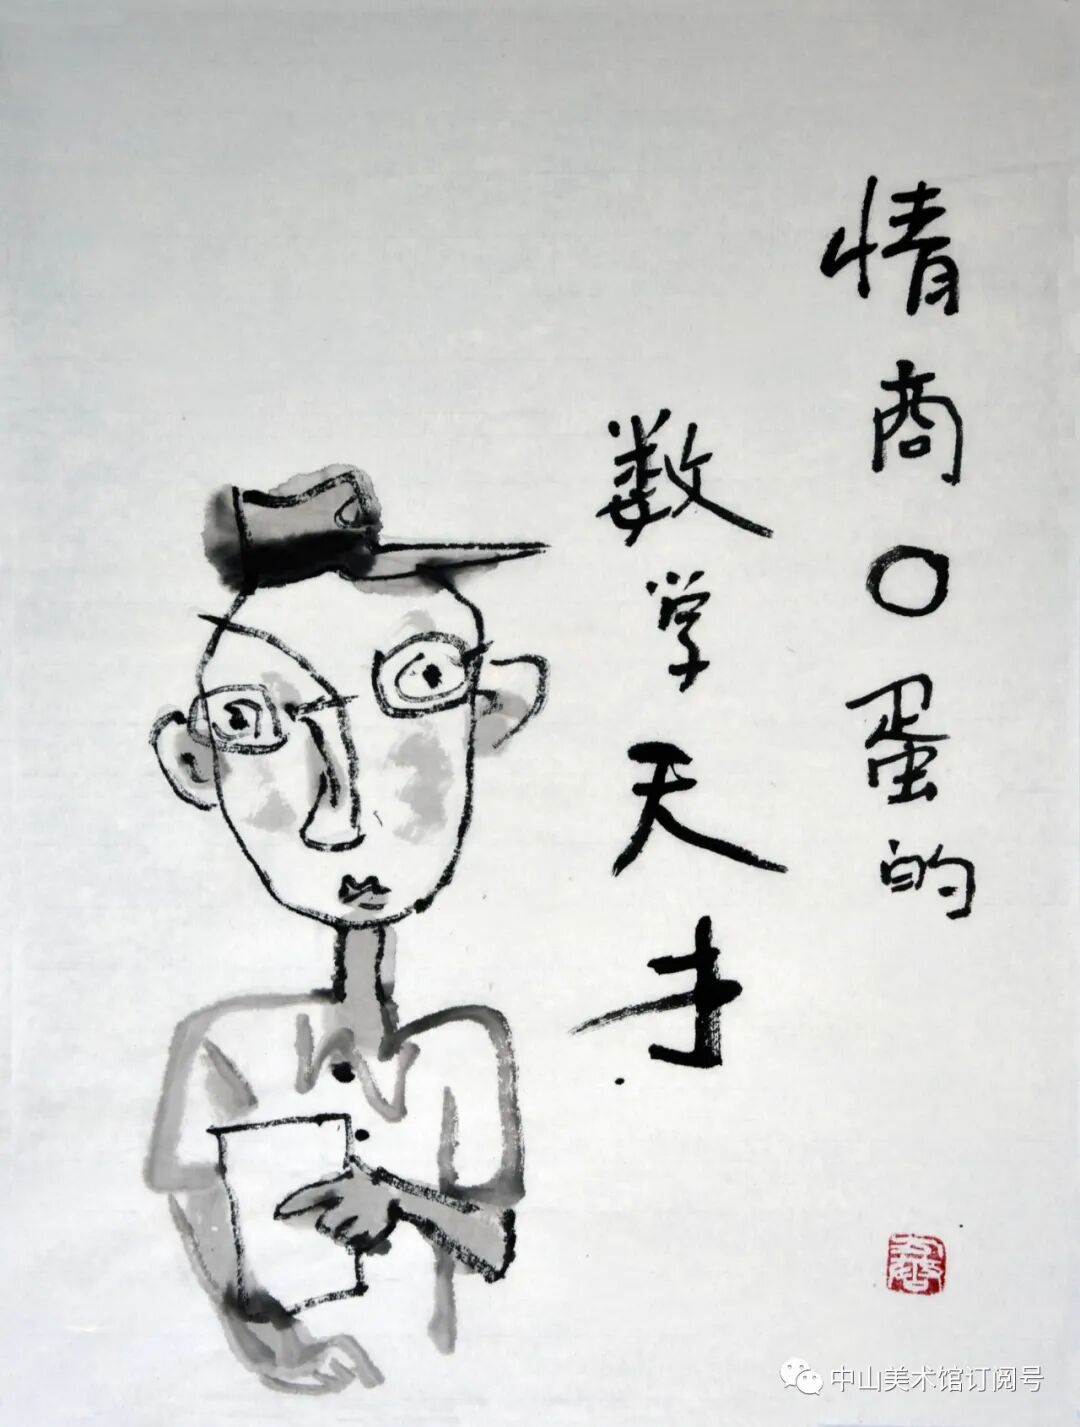 情商〇蛋的
数学天才
中山美术馆订阅号